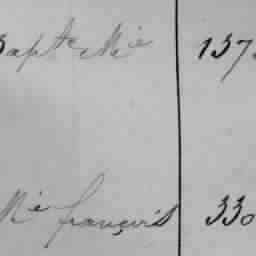 Bapte Mie 137
Mie françois 330